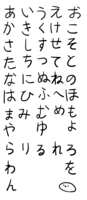 あかさたなはまやらわん
いきしちにひみり
うくすつぬふむゆる
えけせてねへめれ
おこそとのほもよろを